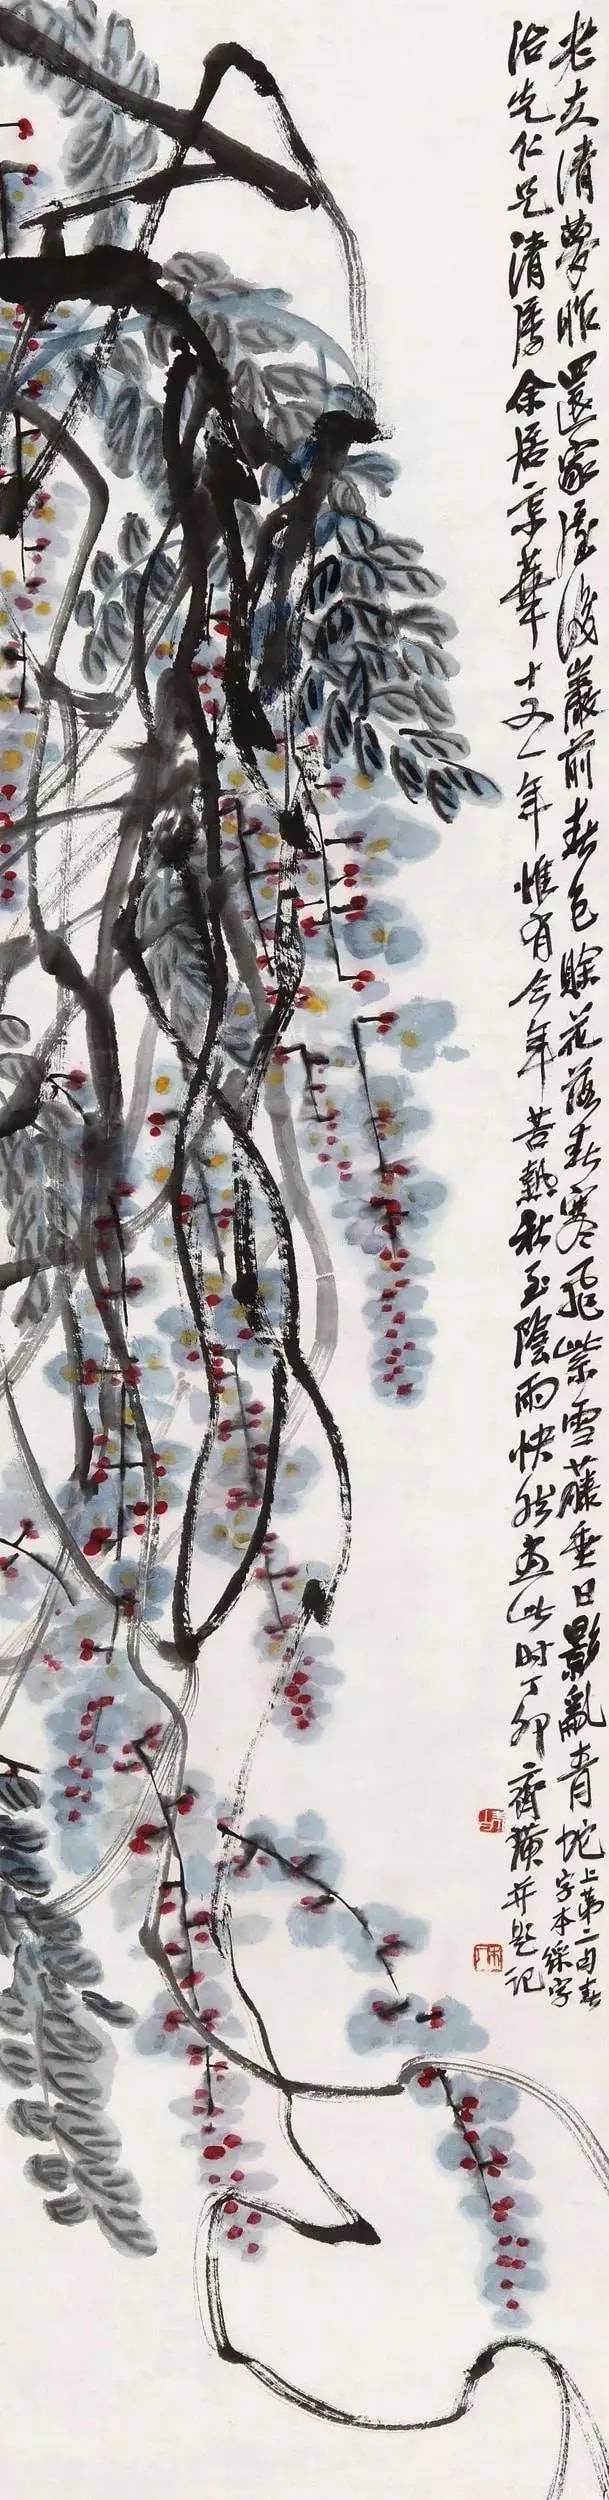 老夫清夢昨還家屋後巖前春色賖花落春寒飛紫雪藤垂日影亂青蛇
上第二句春
字本綵字
先仁兄清屬余居京華十又一年惟有今年苦熱秋至陰雨快然畫此時丁卯齊璜并題記